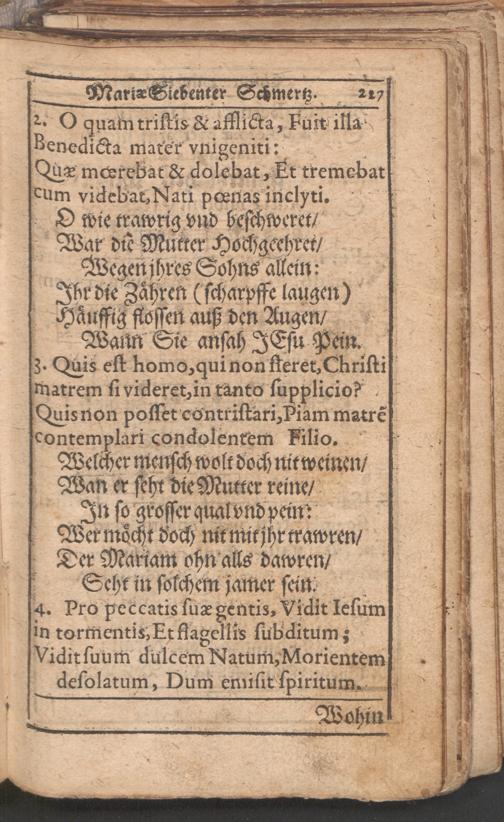 Mariæ Siebenter Schmertz. 217
2. O quam tristis & afflicta, Fuit illa
Benedicta mater vnigeniti:
Quæ mœrebat & dolebat, Et tremebat
cum videbat, Nati pœnas inclyti.
O wie trawrig vnd beschweret/
War die Mutter Hochgeehret/
Wegen jhres Sohns allein:
Jhr die Zähren (scharpffe laugen)
Häuffig flossen auß den Augen/
Wann Sie ansah JEsu Pein.
3. Quis est homo, qui non fleret, Christi
matrem si videret, in tanto supplicio?
Quis non posset contristari, Piam matrē
contemplari condolentem Filio.
Welcher mensch wolt doch nit weinen/
Wan er seht die Mutter reine/
In so grosser qual vnd pein:
Wer möcht doch nit mit jhr trawren/
Der Mariam ohn alls dawren/
Seht in solchem jamer sein.
4. Pro peccatis suæ gentis, Vidit Iesum
in tormentis, Et flagellis subditum;
Vidit suum dulcem Natum, Morientem
desolatum, Dum emisit spiritum.
Wohin